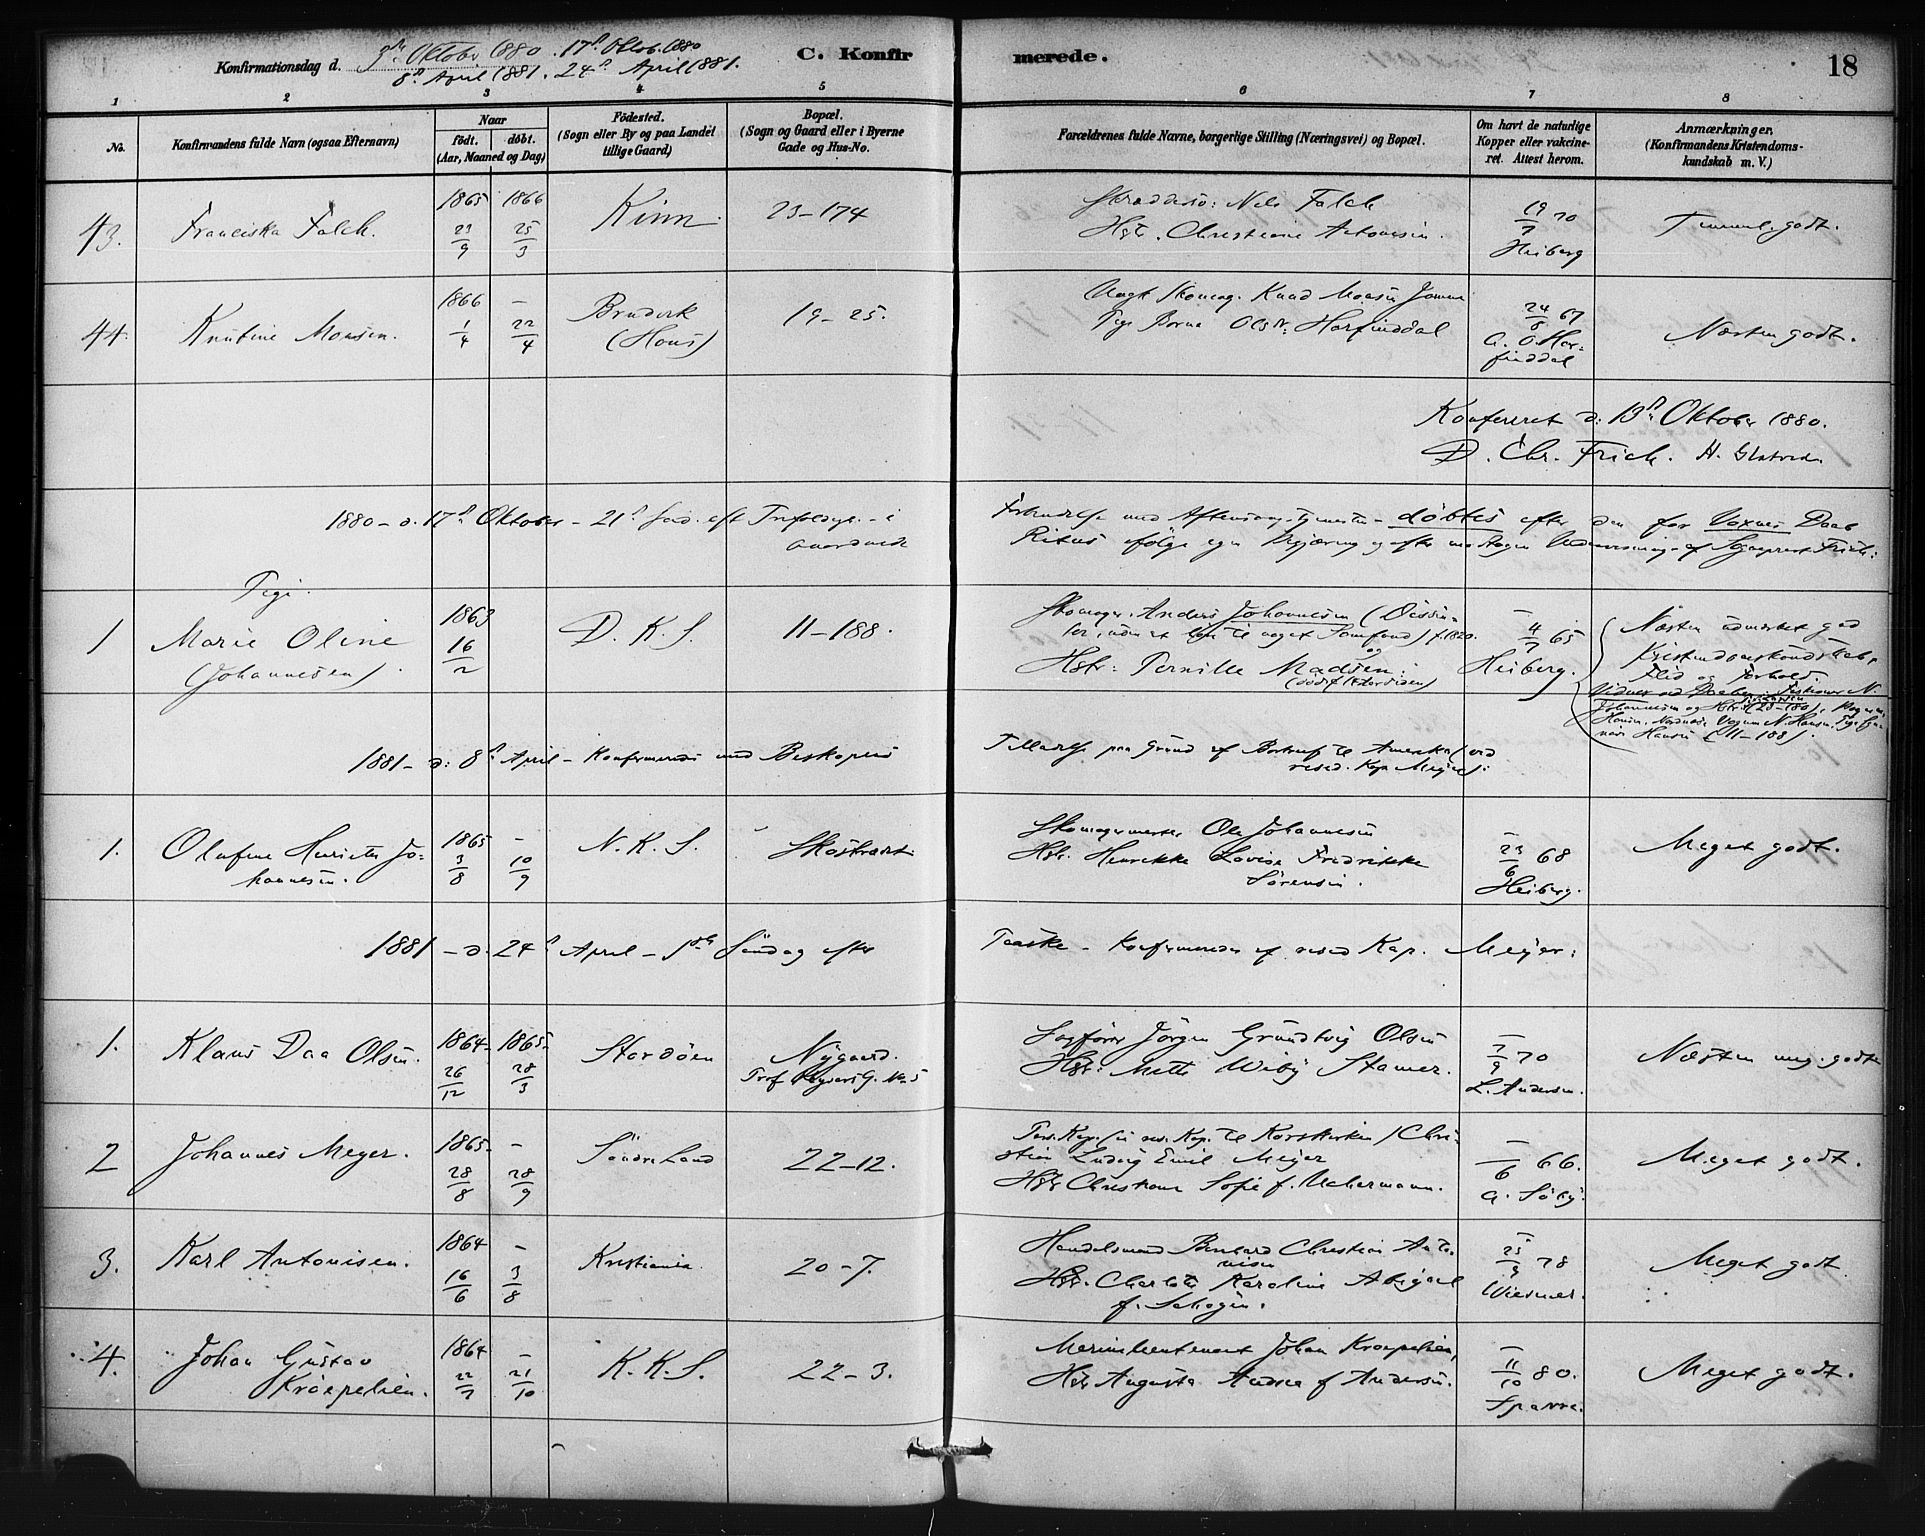 Konfirmationsdag d. 3die Oktober 1880. 17de Oktob. 1880
8de April 1881. 24de April 1881.
C. Konfir merede.
18
1 2 3 4 5 6 7 8
No.
Konfirmandens fulde Navn (ogsaa Efternavn)
Naar
födt. döbt.
(Aar, Maaned og Dag)
Födested.
(Sogn eller By og paa Landet
tillige Gaard)
Bopæl.
(Sogn og Gaard eller i Byerne
Gade og Hus-No.
Forældrenes fulde Navne, borgerlige Stilling (Næringsvei) og Bopæl.
Om havt de naturlige
Kopper eller vakcine-
ret. Attest herom.
Anmærkninger.
(Konfirmandens Kristendoms-
kundskab m. V.)
43. Franciska Falch.
1865 23/9
1866 25/3
Kinn
23-174
Nils Falch
Hstr. Christiane Antonisen.
19/7 70
Heiberg
Temmel. godt.
44. Knutine Monsen.
1866 1/4
– 22/4
Bradvik
(Hous)
19-25.
Knud Monsen
Pige Berna Olsdr. Harfinddal
24/8 67
G. O. Har-
finddal
Næsten godt.
Konfereret d: 13de Oktober 1880.
D. Chr. Frich.
1880 – d. 17de Oktober – 21de Sønd. eft Trefoldigh. – i
Forbindelse med Aftensang-Tjenesten – döbtes efter den for Voxnes Daab
Ritus ifölge egen Begjæring og efter modtagen Undervisning af Sognepræst Frich:
Pige.
1 Marie Oline
(Johannesen)
1863 16/2
D. K. S.
11-188.
Skomager. Anders Johannesen (Dissin-
ter, uden at höre til noget Samfund) f. 1820.
og
Hstr: Pernille Madsen.
– 4/7 65
Heiberg.
Næsten udmærket god
Kristendomskundskab,
Flid og Forhold.
(11-188).
1881 – d: 8de April – Konfirmeredes med Biskopens
Tilladelse paa Grund af Bortreise til Amerika (ved
resid. Kap Meyer):
1. Olufine Henriette Jo-
hannesen.
1865 3/8
– 10/9
N. K. S.
Skostrædet
Skomagermester Ole Johannesen
Hstr. Henrikke Lovise Fredrikke
Sörensen.
– 23/6 68
Heiberg.
Meget godt.
1881 – d. 24de April – 1ste Söndag efter
Paaske – Konfirmeredes af resid Kap. Meyer:
1. Klaus Daa Olsen.
1864 26/12
1865 28/3
Stordöen
Nygaard.
Sagförer Jörgen Grundtvig Olsen
Hstr. Mette Wiby Stamer.
– 7/9 70
L. Andersen.
Næsten meg. godt
2 Johannes Meyer.
1865 28/8
– 28/9
Söndre Land
22-12.
Pers. Kap. (nu res. Kap. til Korskirken) Chri-
stian Ludvig Emil Meyer
Hstr Christiane Sofie f. Uchermann.
– /6 66.
Meget godt.
3. Karl Antonisen.
1864 16/6
– 3/8
Kristiania.
20-7.
Handelsmand Bernhard Christian Anto-
nisen
Hstr. Charlotte Karoline Abigael
– 25/9 78
Wiesner.
Meget godt
4. Johan Gustav
Kröepelien.
1864 22/7
– 21/10
K. K. S.
22-3.
Marinelieutenant Johan Kroepelien,
Hstr Augusta Andrea f Andersen.
– 11/10 80.
Sparre.
Meget godt.